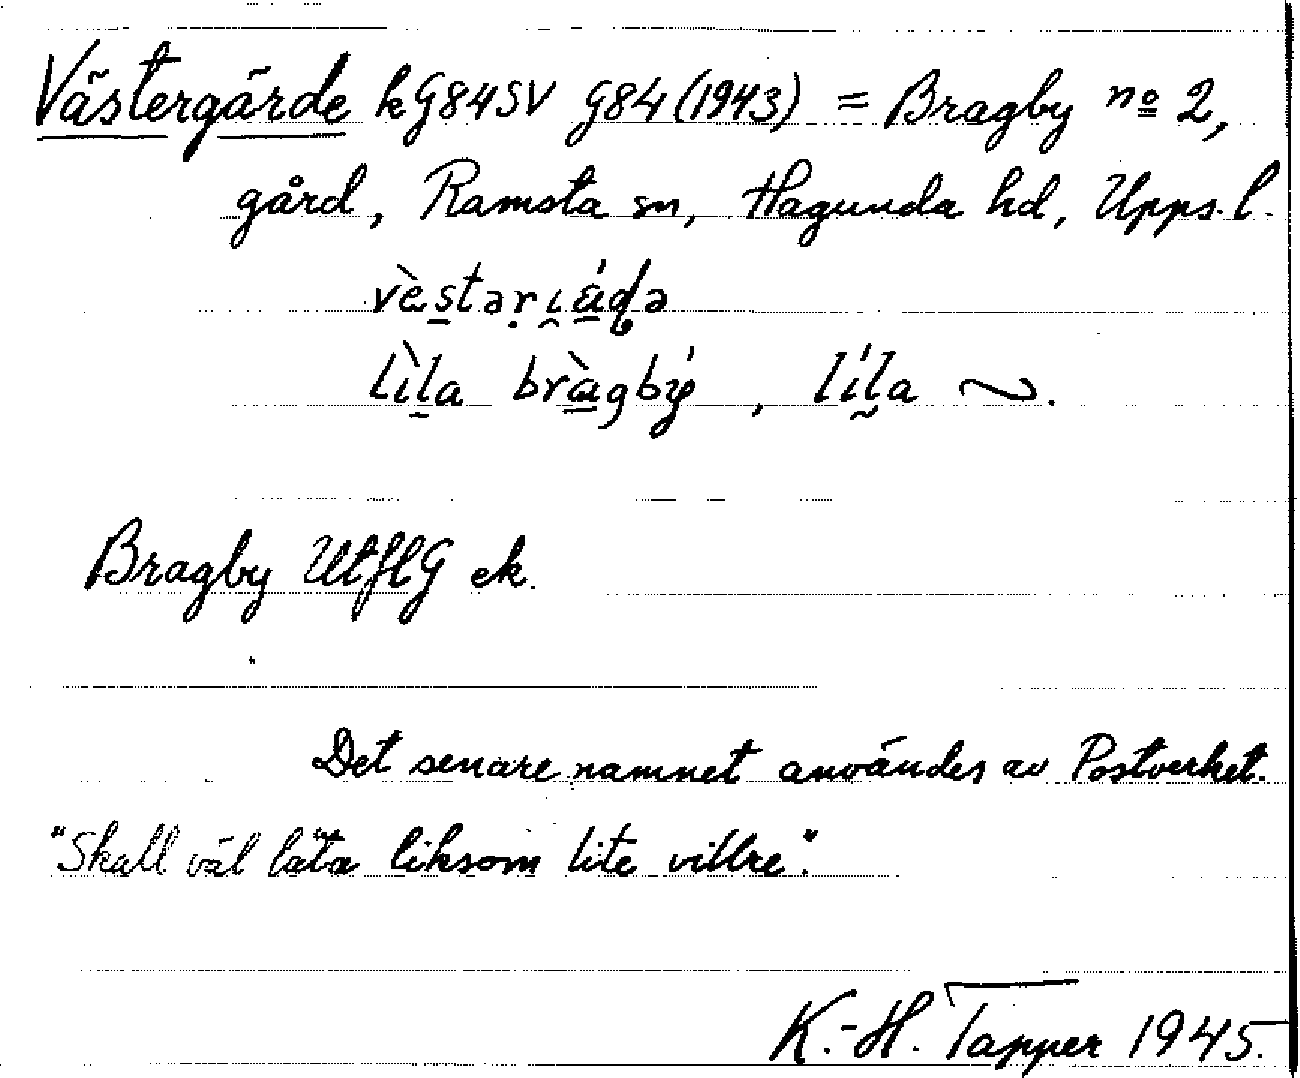 Västergärde kG84SV G84(1943) = Bragby nº 2,
gård, Ramsta sn, Hagunda hd, Upps. l.
vè̱stəṛi̯áḍə
lìḻa bràgbý, líl̰a ~.
Bragby UtflG ek.
Det senare namnet användes av Postverket.
"Skall väl låta liksom lite villre".
K.-H. Tapper 1945.